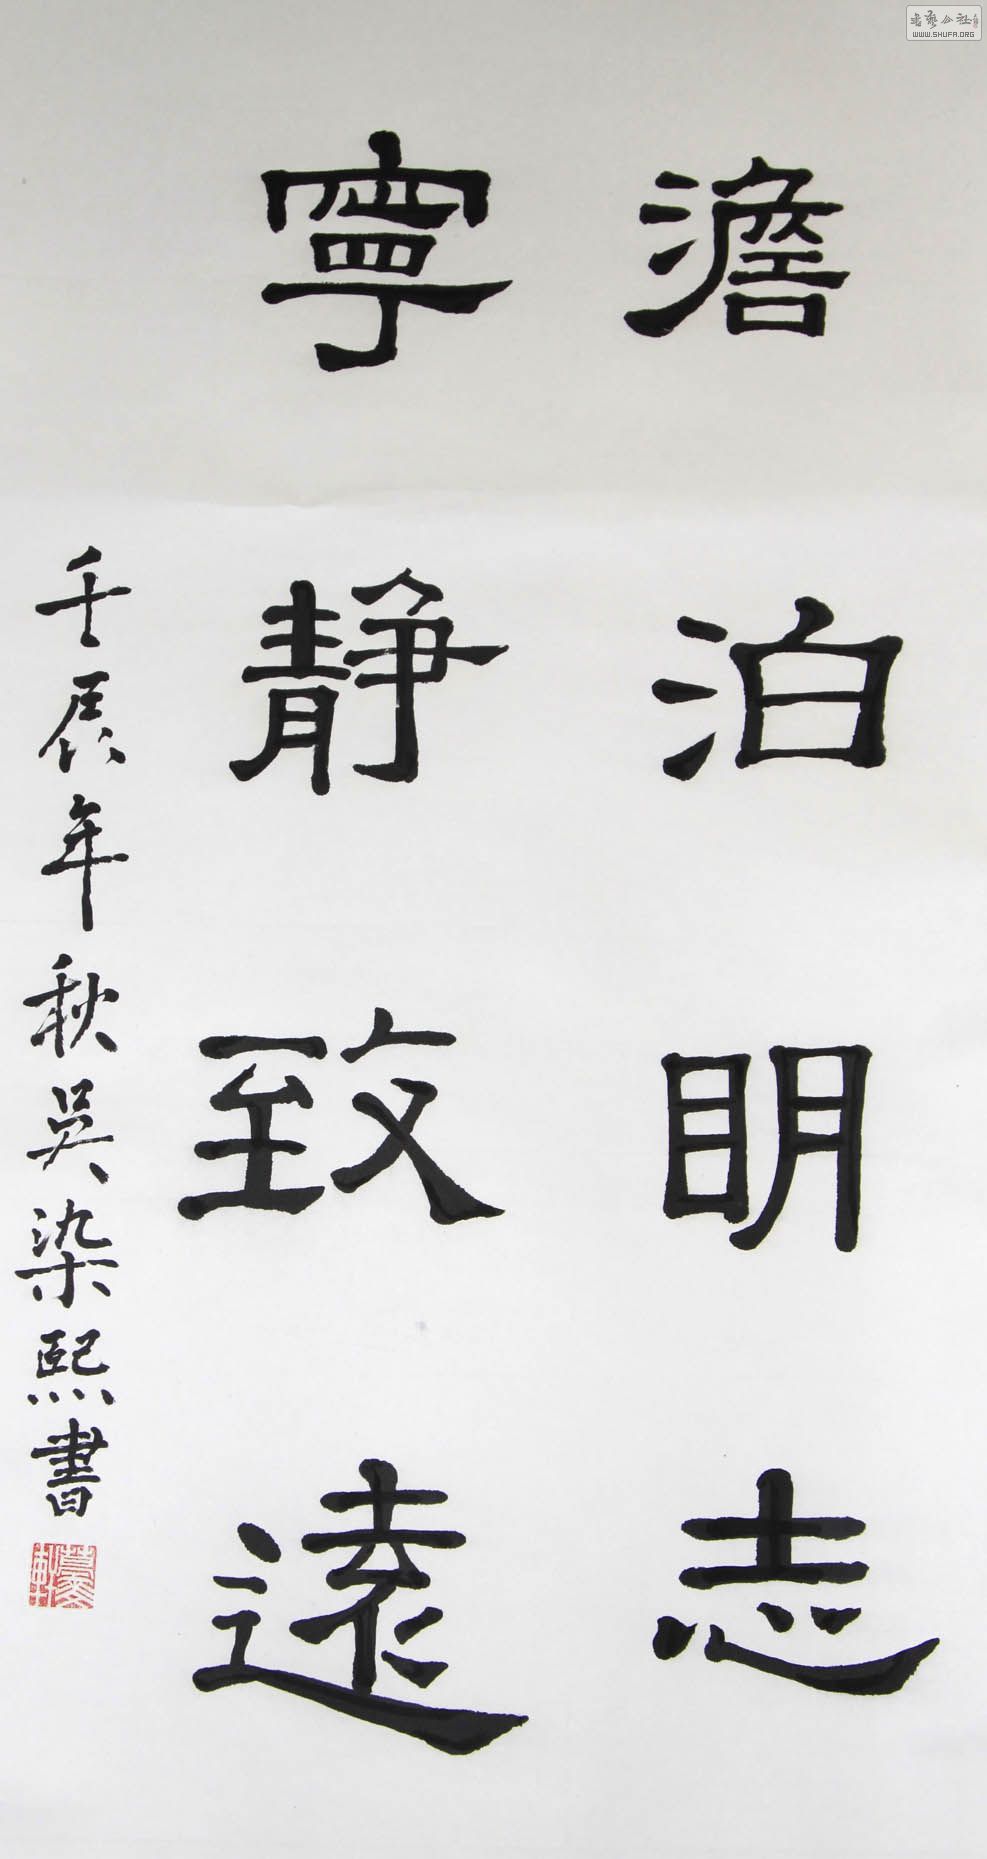 澹泊明志
寧靜致遠
壬辰年秋吳染熙書
書藝公社
WWW.SHUFA.ORG